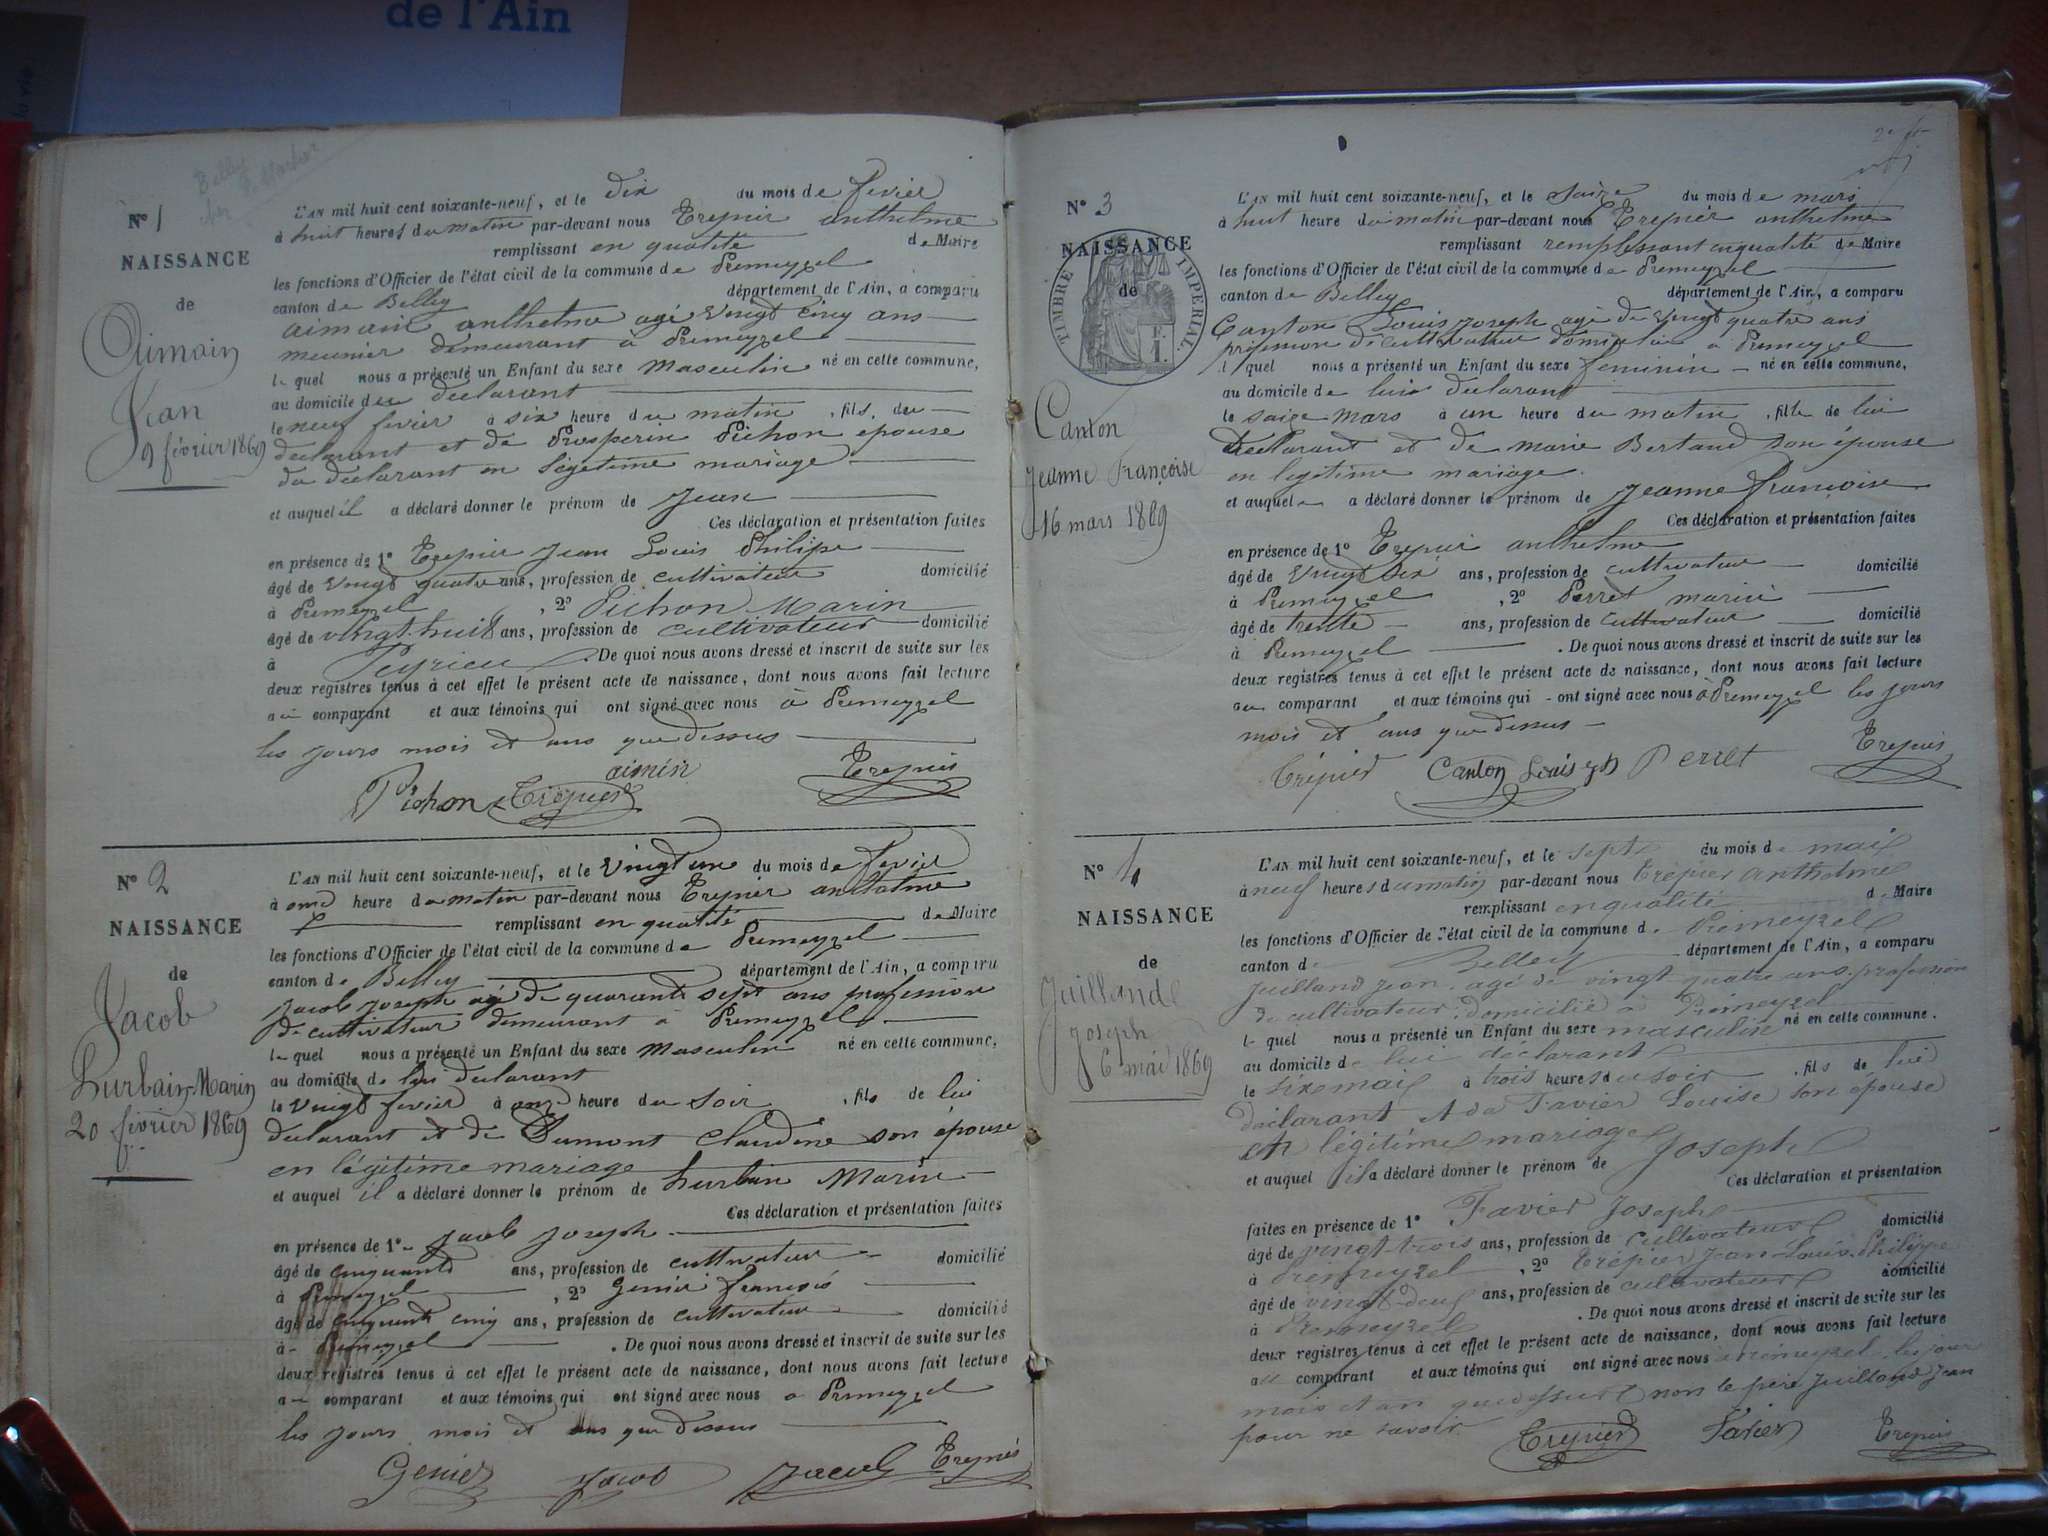 de l'Ain
Belley
N° 1
NAISSANCE
de
Aimain
Jean
9 février 1869
L'AN mil huit cent soixante-neuf, et le dix du mois de fevier
à huit heures du matin par-devant nous Trepier anthelme
remplissant en qualité de Maire
les fonctions d'Officier de l'état civil de la commune de Premeyzel
canton de Belley département de l'Ain, a comparu
aimain anthelme agé vingt cinq ans
meunier demeurant à Premeyzel
lequel nous a présenté un Enfant du sexe Masculin né en cette commune,
au domicile du declarant
le neuf fevier à six heure du matin, fils du
declarant et de Prosperine Pichon epouse
du declarant en legetime mariage
et auquel il a déclaré donner le prénom de Jean
Ces déclaration et présentation faites
en présence de 1° Trepier Jean Louis Philipe
âgé de vingt quatre ans, profession de cultivateur domicilié
à Premeyzel, 2° Pichon Marin
âgé de vingt-huit ans, profession de cultivateur domicilié
à Peyrieu. De quoi nous avons dressé et inscrit de suite sur les
deux registres tenus à cet effet le présent acte de naissance, dont nous avons fait lecture
au comparant et aux témoins qui ont signé avec nous à Premeyzel
les jours mois et ans que dessus
aimin Trepier
Pichon Trépier
N° 2
NAISSANCE
de
Jacob
hurbain-Marin
20 février 1869
L'AN mil huit cent soixante-neuf, et le vingt un du mois de fevier
à onze heure du matin par-devant nous Trepier anthelme
remplissant en qualité de Maire
les fonctions d'Officier de l'état civil de la commune de Premeyzel
canton de Belley département de l'Ain, a comparu
Jacob Joseph agé de quarante sept ans profession
de cultivateur demeurant à Premeyzel
lequel nous a présenté un Enfant du sexe Masculin né en cette commune,
au domicile de lui declarant
le vingt fevier à onze heure du soir, fils de lui
declarant et de Dumont Claudine son épouse
en légitime mariage
et auquel il a déclaré donner le prénom de hurbin Marin
Ces déclaration et présentation faites
en présence de 1° Jacob Joseph
âgé de cinquante ans, profession de cultivateur domicilié
à Premeyzel, 2° Genier françois
âgé de cinquante cinq ans, profession de cultivateur domicilié
à Premeyzel. De quoi nous avons dressé et inscrit de suite sur les
deux registres tenus à cet effet le présent acte de naissance, dont nous avons fait lecture
au comparant et aux témoins qui ont signé avec nous à Premeyzel
les jours mois et ans que dessus
Genier Jacob Jacob Trepier
N° 3
NAISSANCE
de
TIMBRE IMPERIAL
Canton
Jeanne Françoise
16 mars 1869
L'AN mil huit cent soixante-neuf, et le saize du mois de mars
à huit heure du matin par-devant nous Trepier anthelme
remplissant remplissant en qualité de Maire
les fonctions d'Officier de l'état civil de la commune de Premeyzel
canton de Belley département de l'Ain, a comparu
Canton Louis Joseph agé de vingt quatre ans
profession de cultivateur domicilié à Premeyzel
lequel nous a présenté un Enfant du sexe feminin né en cette commune,
au domicile de lui declarant
le saize mars à un heure du matin, fille de lui
declarant et de marie Bertand son épouse
en legitime mariage
et auquel a déclaré donner le prénom de Jeanne françoise
Ces déclaration et présentation faites
en présence de 1° Trepier anthelme
âgé de vingt six ans, profession de cultivateur domicilié
à Premeyzel, 2° Perret marin
âgé de trente ans, profession de cultivateur domicilié
à Premeyzel. De quoi nous avons dressé et inscrit de suite sur les
deux registres tenus à cet effet le présent acte de naissance, dont nous avons fait lecture
au comparant et aux témoins qui ont signé avec nous à Premeyzel les jours
mois et ans que dessus
Trépier Canton Louis Jph Perret Trepier
N° 4
NAISSANCE
de
Juilland
Joseph
6 mai 1869
L'AN mil huit cent soixante-neuf, et le sept du mois de mai
à neuf heures du matin par-devant nous Trépier anthelme
remplissant en qualité de Maire
les fonctions d'Officier de l'état civil de la commune de Prémeyzel
canton de Belley département de l'Ain, a comparu
Juilland jean agé de vingt quatre ans profession
de cultivateur domicilié à Prémeyzel
lequel nous a présenté un Enfant du sexe masculin né en cette commune.
au domicile de lui déclarant
le six mai à trois heures du soir, fils de lui
déclarant et da Favier Louise son épouse
en légitime mariage
et auquel il a déclaré donner le prénom de Joseph
Ces déclaration et présentation
faites en présence de 1° Favier Joseph
âgé de vingt-trois ans, profession de cultivateur domicilié
à Premeyzel, 2° Trépier Jean-Louis-Philippe
âgé de vingt-deux ans, profession de cultivateur domicilié
à Premeyzel. De quoi nous avons dressé et inscrit de suite sur les
deux registres tenus à cet effet le présent acte de naissance, dont nous avons fait lecture
au comparant et aux témoins qui ont signé avec nous à Prémeyzel les jour
mois et an que dessus non le père Juilland Jean
pour ne savoir
Trepier Favier Trepier